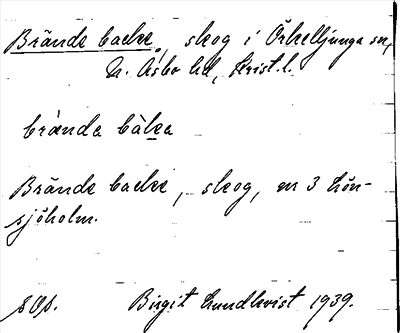 Brände backe, skog i Örkelljunga sn,
N. Åsbo hd, Krist. l.
brànda bàka
Brände backe, skog, m 3 Lön-
sjöholm.
Birgit Lundkvist 1939.